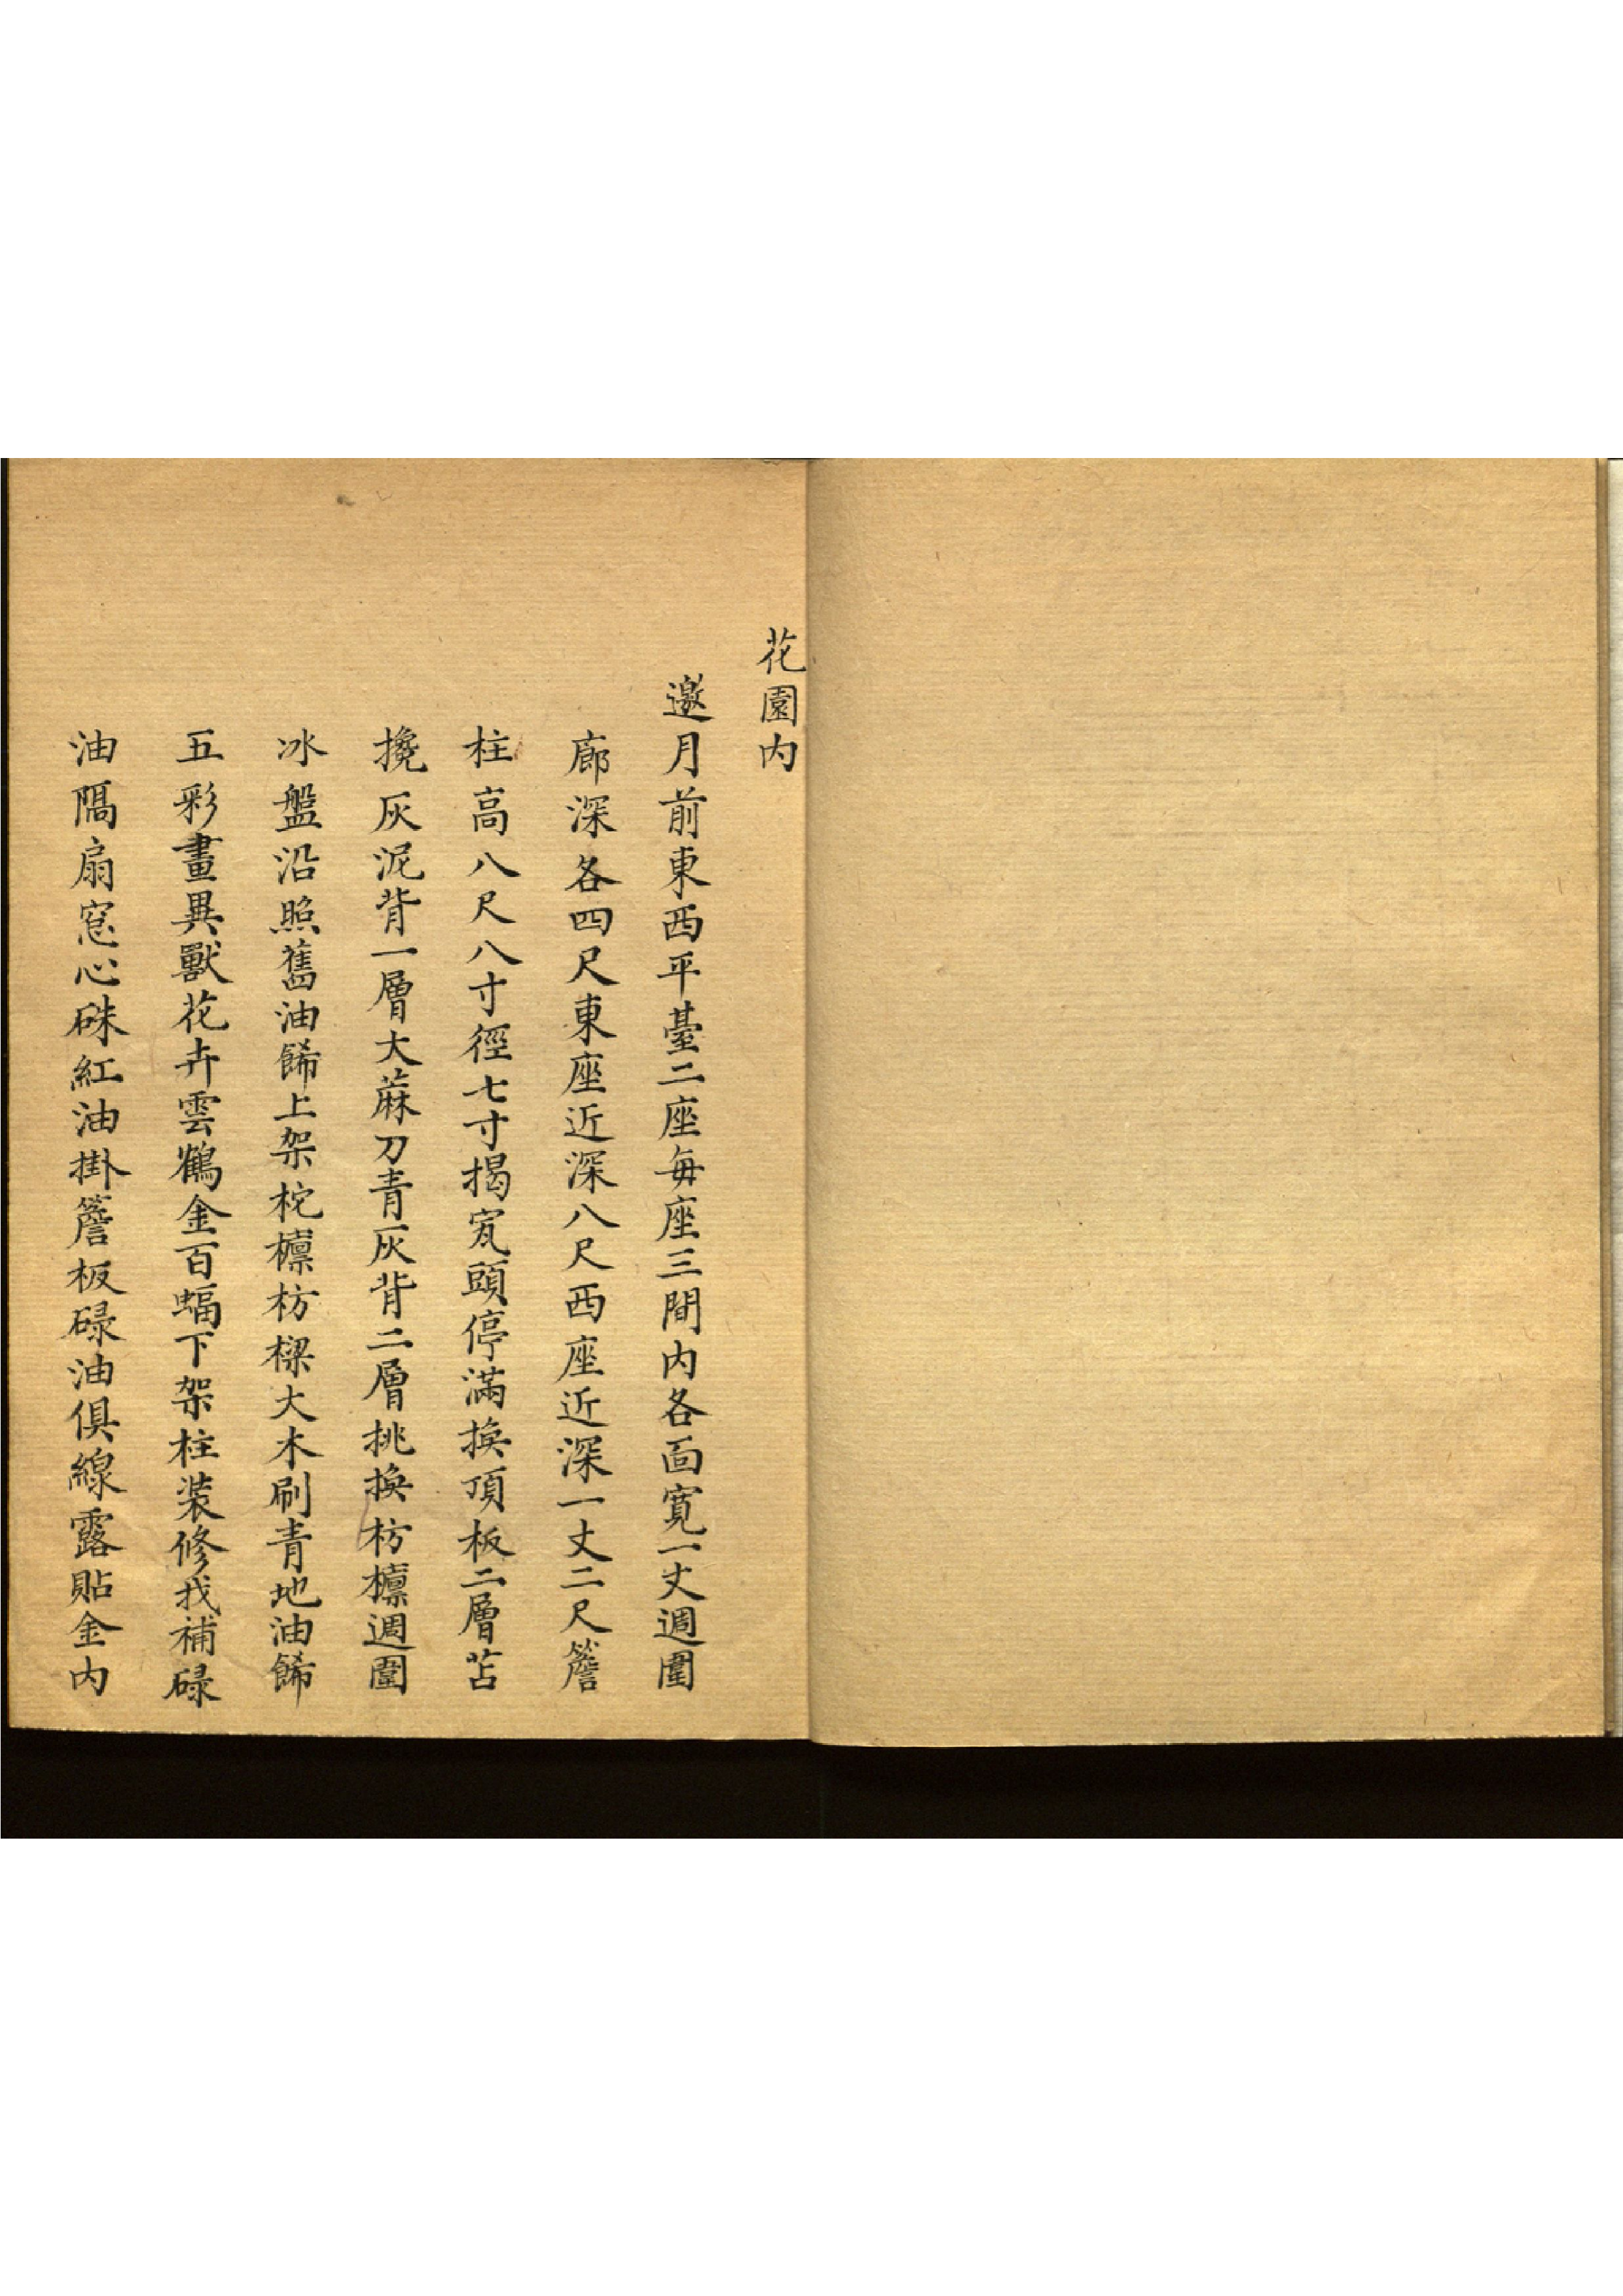 花園内
邀月前東西平臺二座每座三間内各面寬一丈週圍
廊深各四尺東座近深八尺西座近深一丈二尺簷
柱高八尺八寸徑七寸揭瓦頭停滿換頂板二層苫
攙灰泥背一層大蔴刀青灰背二層挑換枋檁週圍
冰盤沿照舊油飾上架柁檁枋樑大木刷青地油飾
五彩畫異獸花卉雲鶴金百蝠下架柱装修找補碌
油隔扇窓心硃紅油掛簷板碌油俱線露貼金内